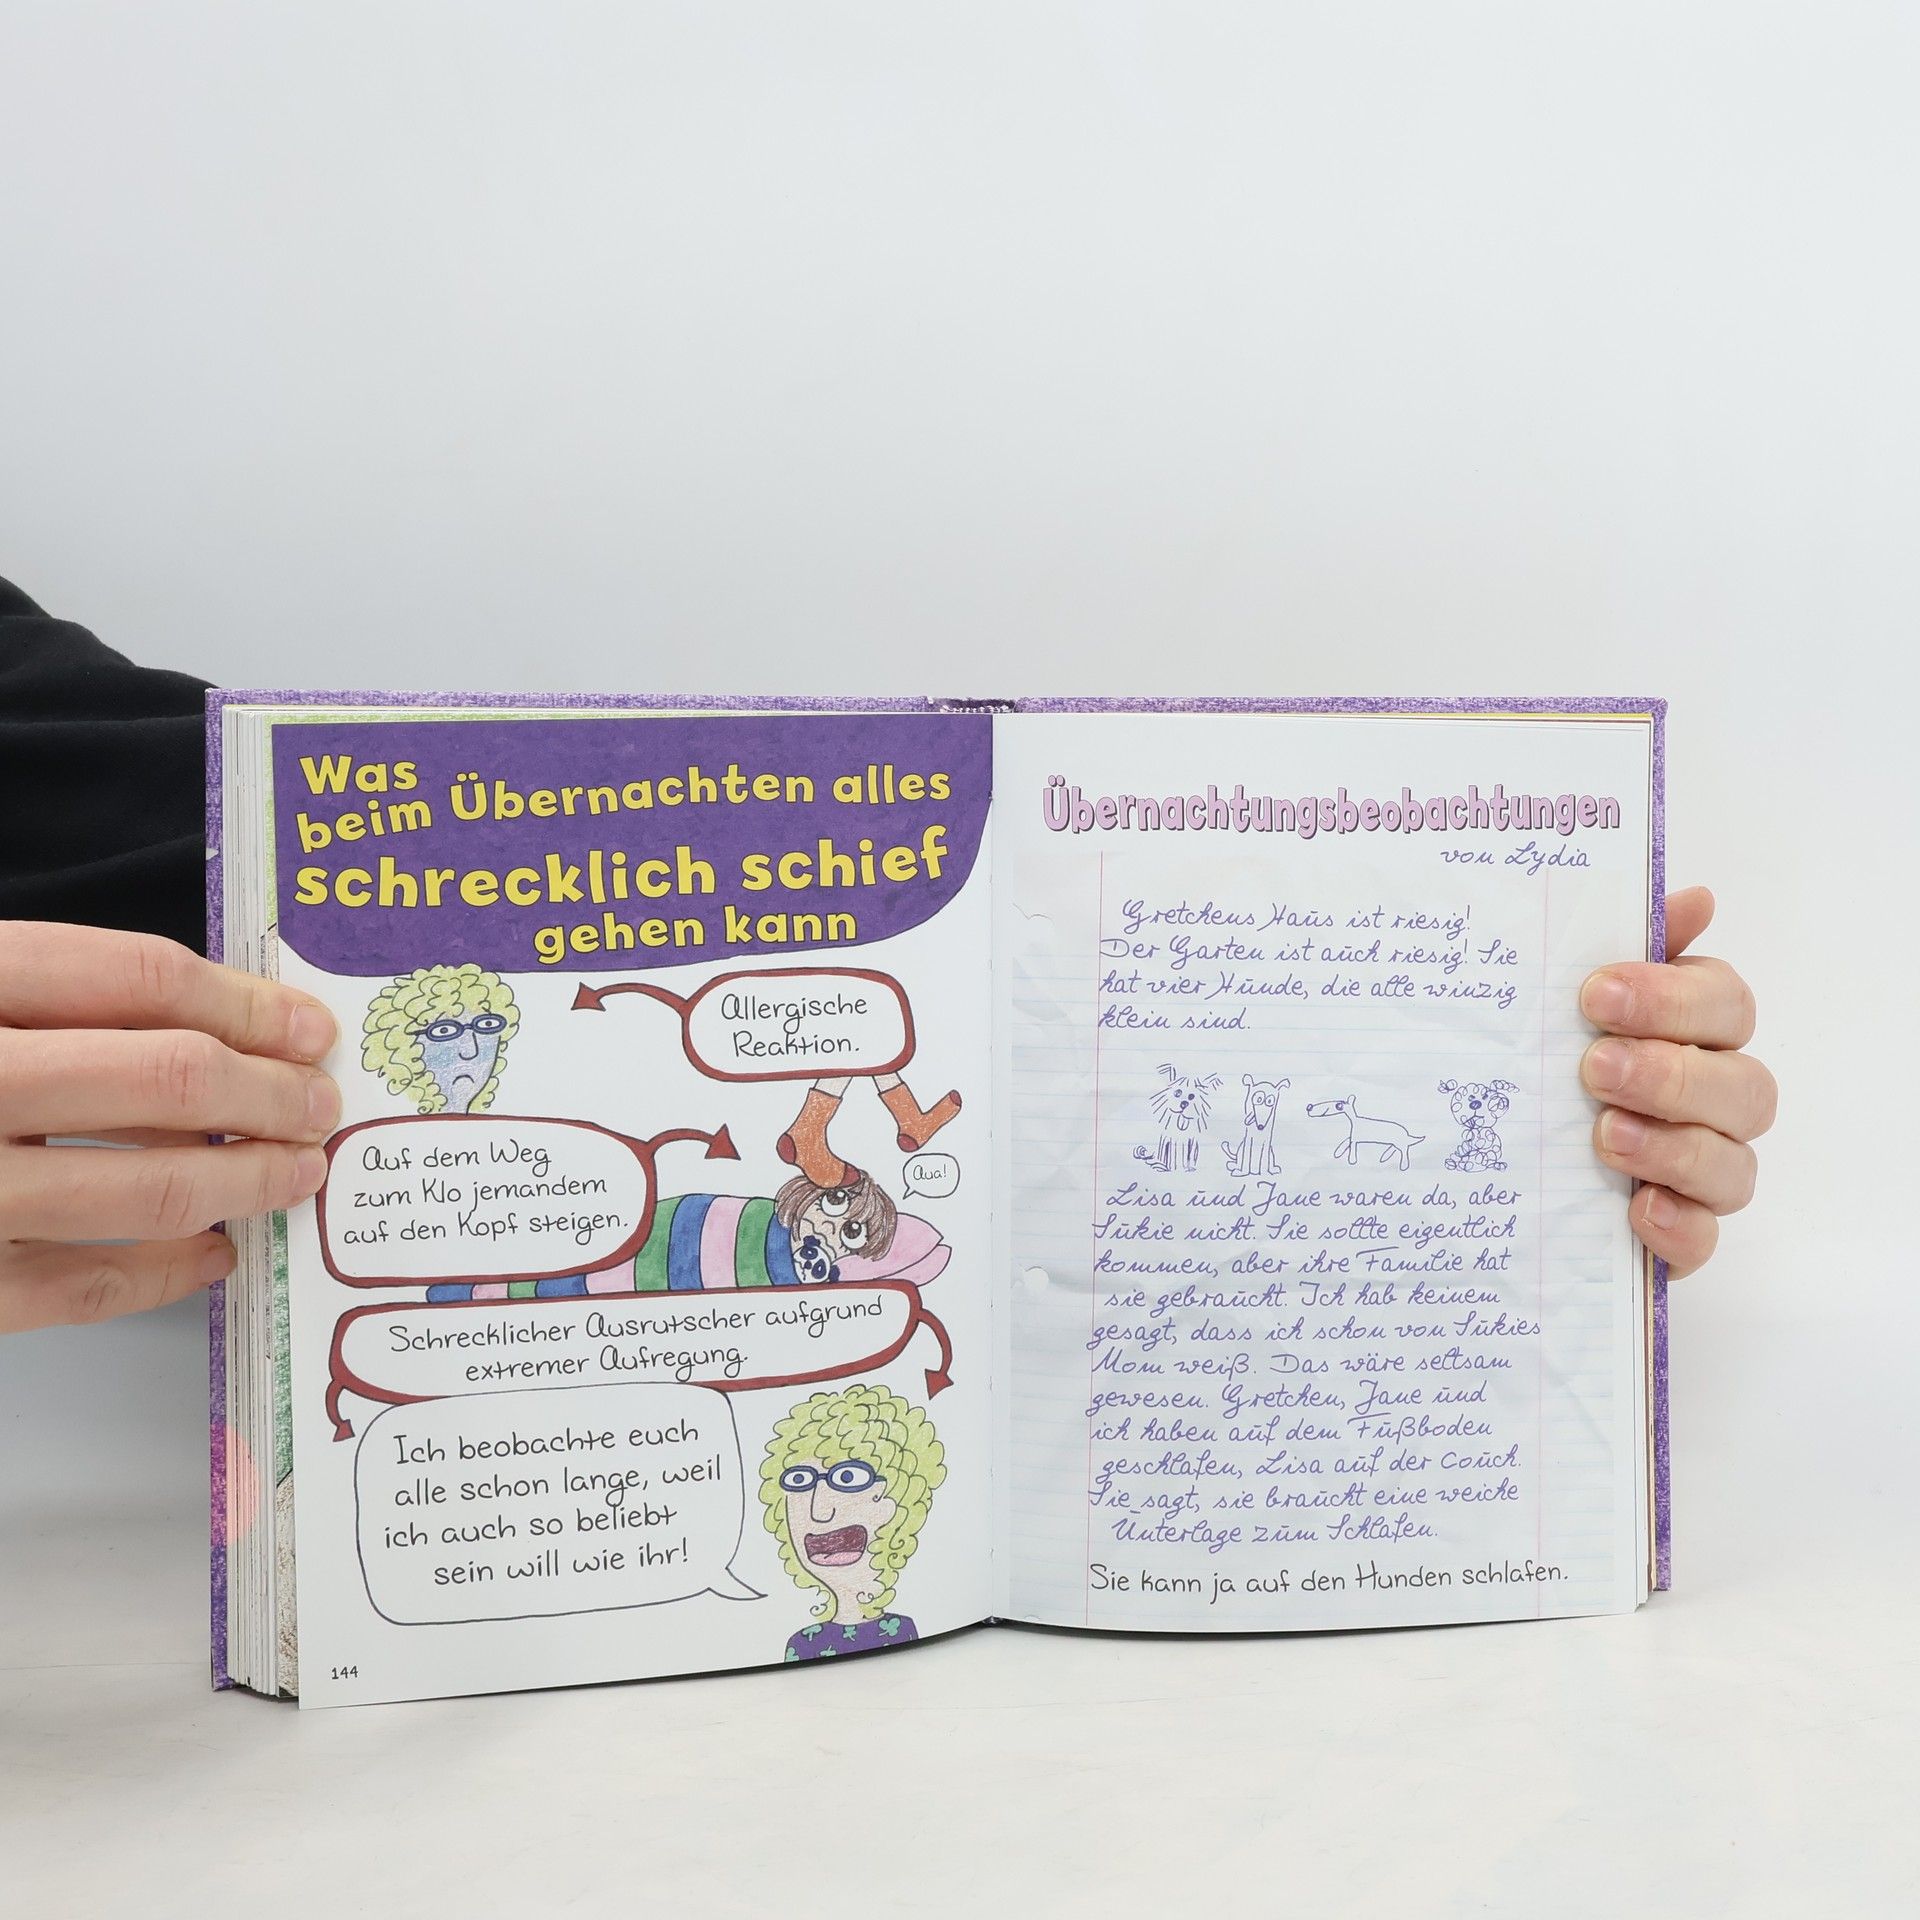 Was
beim Übernachten alles
schrecklich schief
gehen kann
Allergische
Reaktion.
Auf dem Weg
zum Klo jemandem
auf den Kopf steigen.
Aua!
Schrecklicher Ausrutscher aufgrund
extremer Aufregung.
Ich beobachte euch
alle schon lange, weil
ich auch so beliebt
sein will wie ihr!
144
Übernachtungsbeobachtungen
von Lydia
Gretchens Haus ist riesig!
Der Garten ist auch riesig! Sie
hat vier Hunde, die alle winzig
klein sind.
Lisa und Jane waren da, aber
Sukie nicht. Sie sollte eigentlich
kommen, aber ihre Familie hat
sie gebraucht. Ich hab keinem
gesagt, dass ich schon von Sukies
Mom weiß. Das wäre seltsam
gewesen. Gretchen, Jane und
ich haben auf dem Fußboden
geschlafen, Lisa auf der Couch.
Sie sagt, sie braucht eine weiche
Unterlage zum Schlafen.
Sie kann ja auf den Hunden schlafen.